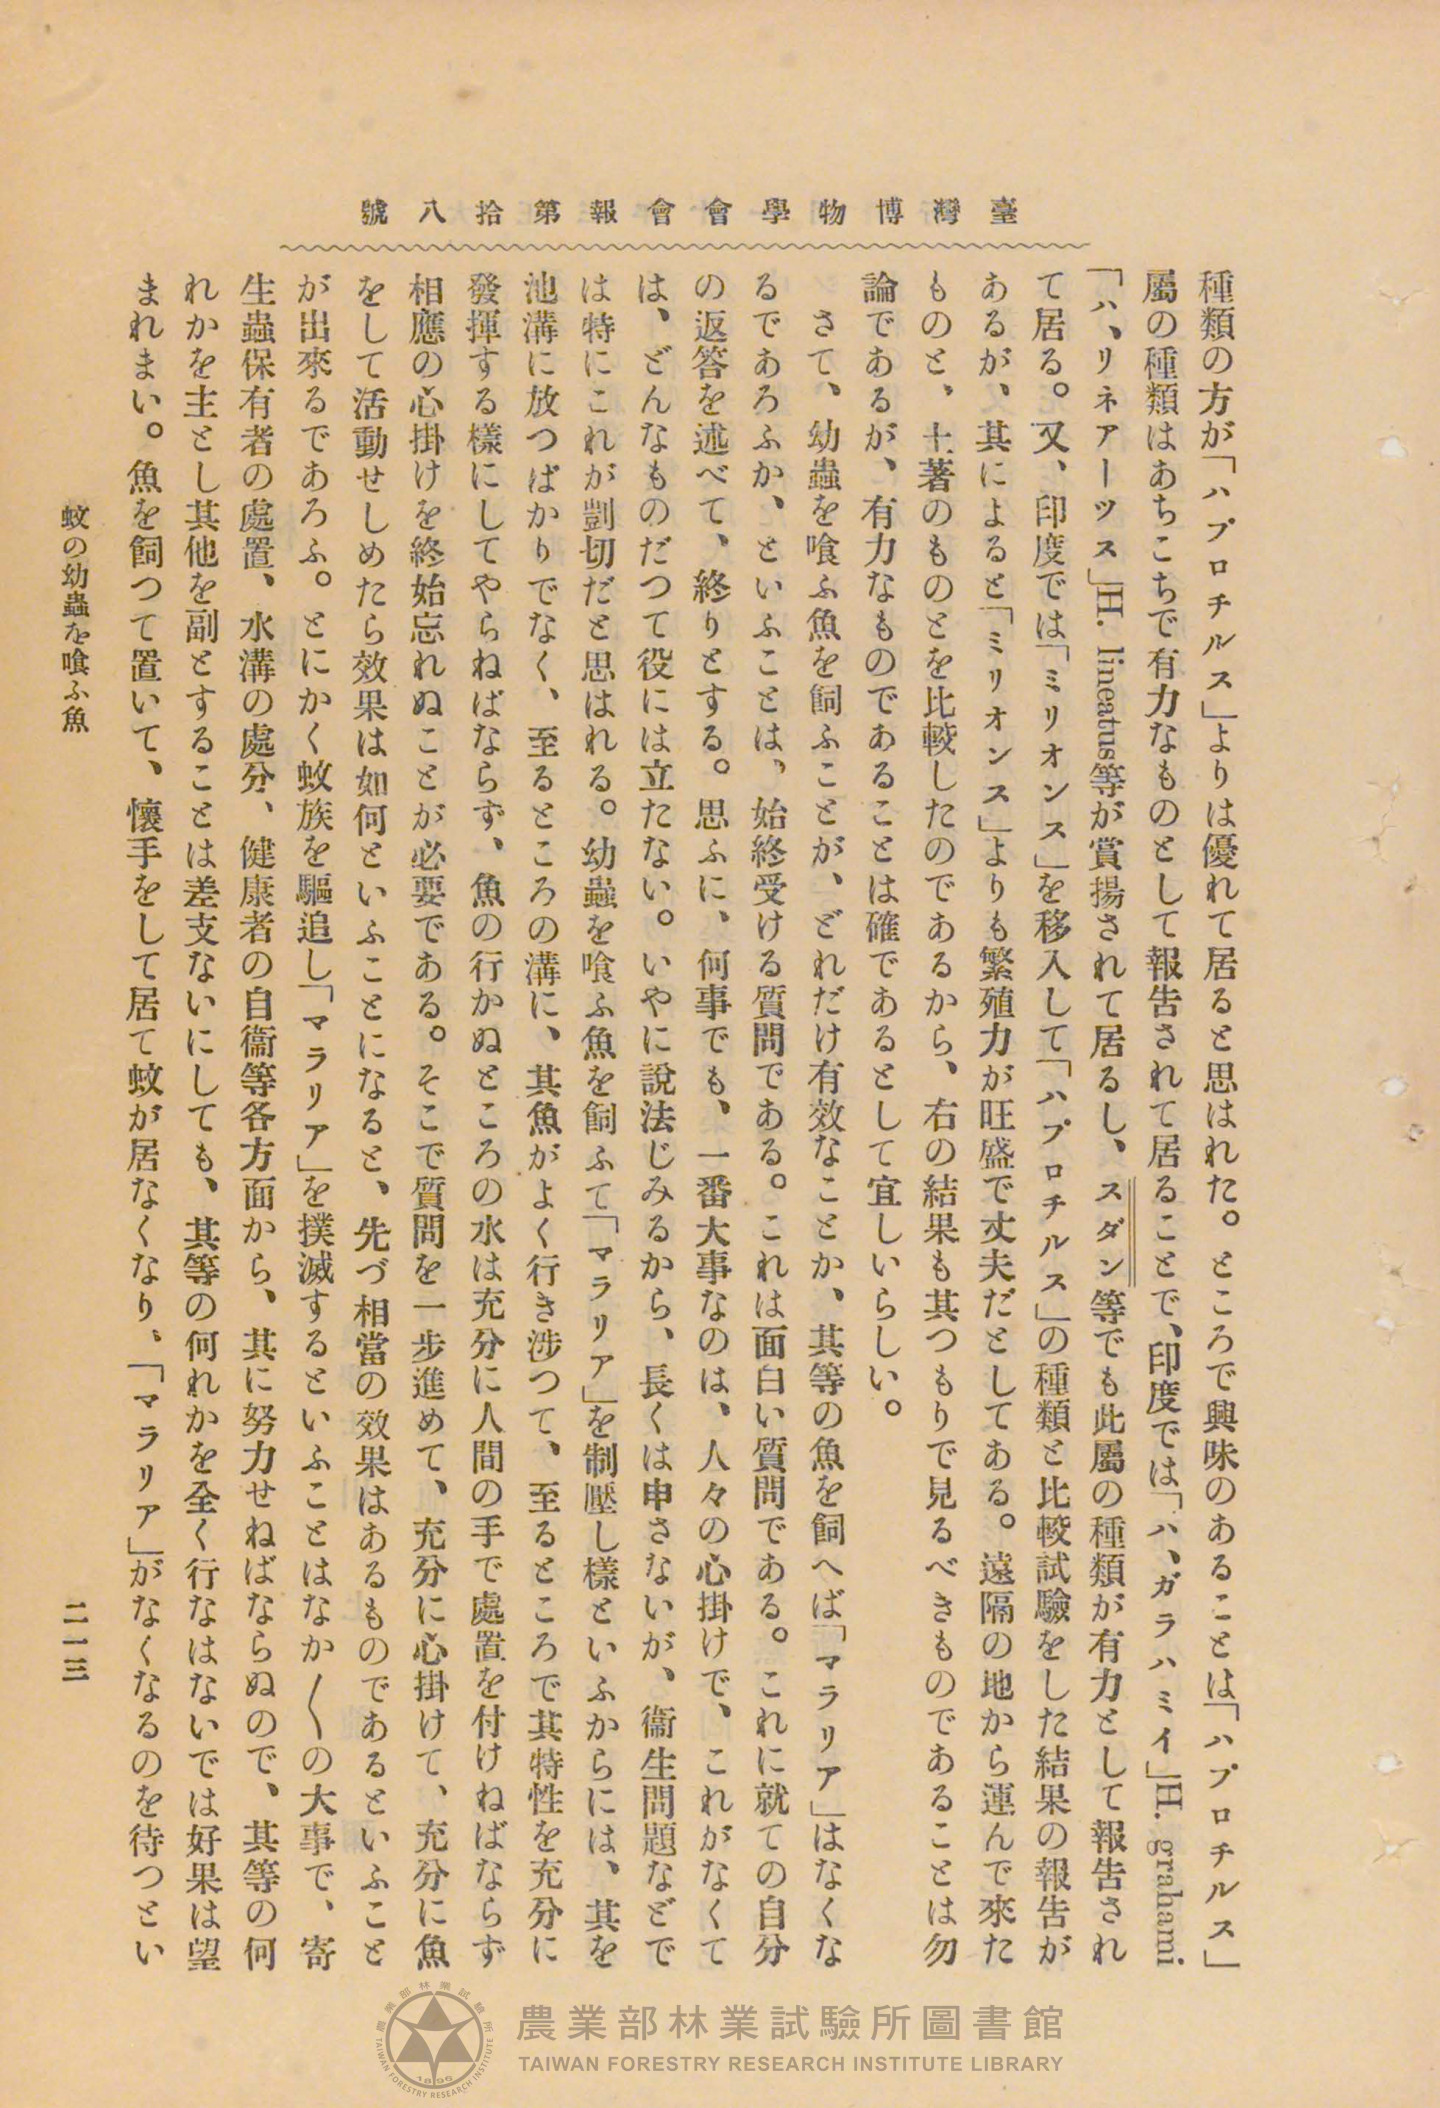 臺灣博物學會會報第拾八號
種類の方が「ハプロチルス」よりは優れて居ると思はれた。ところで興味のあることは「ハプロチルス」
屬の種類はあちこちで有力なものとして報告されて居ることで、印度では「ハ、ガラハミイ」H. grahami
「ハ、リネアーツス」H. lineatus等が賞揚されて居るし、スダン等でも此屬の種類が有力として報告され
て居る。又、印度では「ミリオンス」を移入して「ハプロチルス」の種類と比較試驗をした結果の報告が
あるが、其によると「ミリオンス」よりも繁殖力が旺盛で丈夫だとしてある。遠隔の地から運んで來た
ものと、土著のものとを比較したのであるから、右の結果も其つもりで見るべきものであることは勿
論であるが、有力なものであることは確であるとして宜しいらしい。
さて、幼蟲を喰ふ魚を飼ふことが、どれだけ有效なことか、其等の魚を飼へば「マラリア」はなくな
るであろふか、といふことは、始終受ける質問である。これは面白い質問である。これに就ての自分
の返答を述べて、終りとする。思ふに、何事でも、一番大事なのは、人々の心掛けで、これがなくて
は、どんなものだつて役には立たない。いやに說法じみるから、長くは申さないが、衞生問題などで
は特にこれが剴切だと思はれる。幼蟲を喰ふ魚を飼ふて「マラリア」を制壓し樣といふからには、其を
池溝に放つばかりでなく、至るところの溝に、其魚がよく行き涉つて、至るところで其特性を充分に
發揮する樣にしてやらねばならず、魚の行かぬところの水は充分に人間の手で處置を付けねばならず
相應の心掛けを終始忘れぬことが必要である。そこで質問を一步進めて、充分に心掛けて、充分に魚
をして活動せしめたら效果は如何といふことになると、先づ相當の效果はあるものであるといふこと
が出來るであろふ。とにかく蚊族を驅追し「マラリア」を撲滅するといふことはなか〱の大事で、寄
生蟲保有者の處置、水溝の處分、健康者の自衞等各方面から、其に努力せねばならぬので、其等の何
れかを主とし其他を副とすることは差支ないにしても、其等の何れかを全く行なはないでは好果は望
まれまい。魚を飼つて置いて、懷手をして居て蚊が居なくなり、「マラリア」がなくなるのを待つとい
蚊の幼蟲を喰ふ魚
二一三
農業部林業試驗所圖書館
TAIWAN FORESTRY RESEARCH INSTITUTE LIBRARY
農業部林業試驗所
TAIWAN FORESTRY RESEARCH INSTITUTE
1896